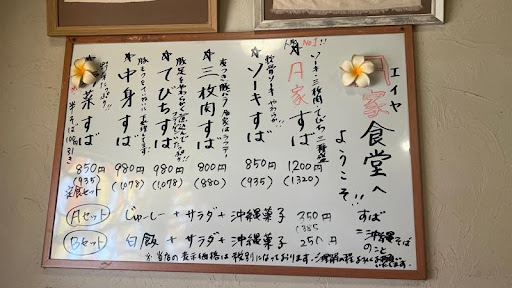 エイヤ
月家食堂へ
ようこそ!!
すば
=沖縄そば
のこと
人気No.1!!
ソーキ・三枚肉・てびち三種盛
☆月家すば
1200円
(1320)
軟骨ソーキ やわらか!!
☆ソーキすば
850円
(935)
☆三枚肉すば
800円
(880)
☆てびちすば
980円
(1,078)
☆中身すば
980円
(1,078)
☆野菜すば
850円
(935)
半そば100円引き
定食セット
Aセット じゅーしー + サラダ + 沖縄菓子 350円
(385
Bセット 白飯 + サラダ + 沖縄菓子 250円
※当店の表示価格は税別になっております。